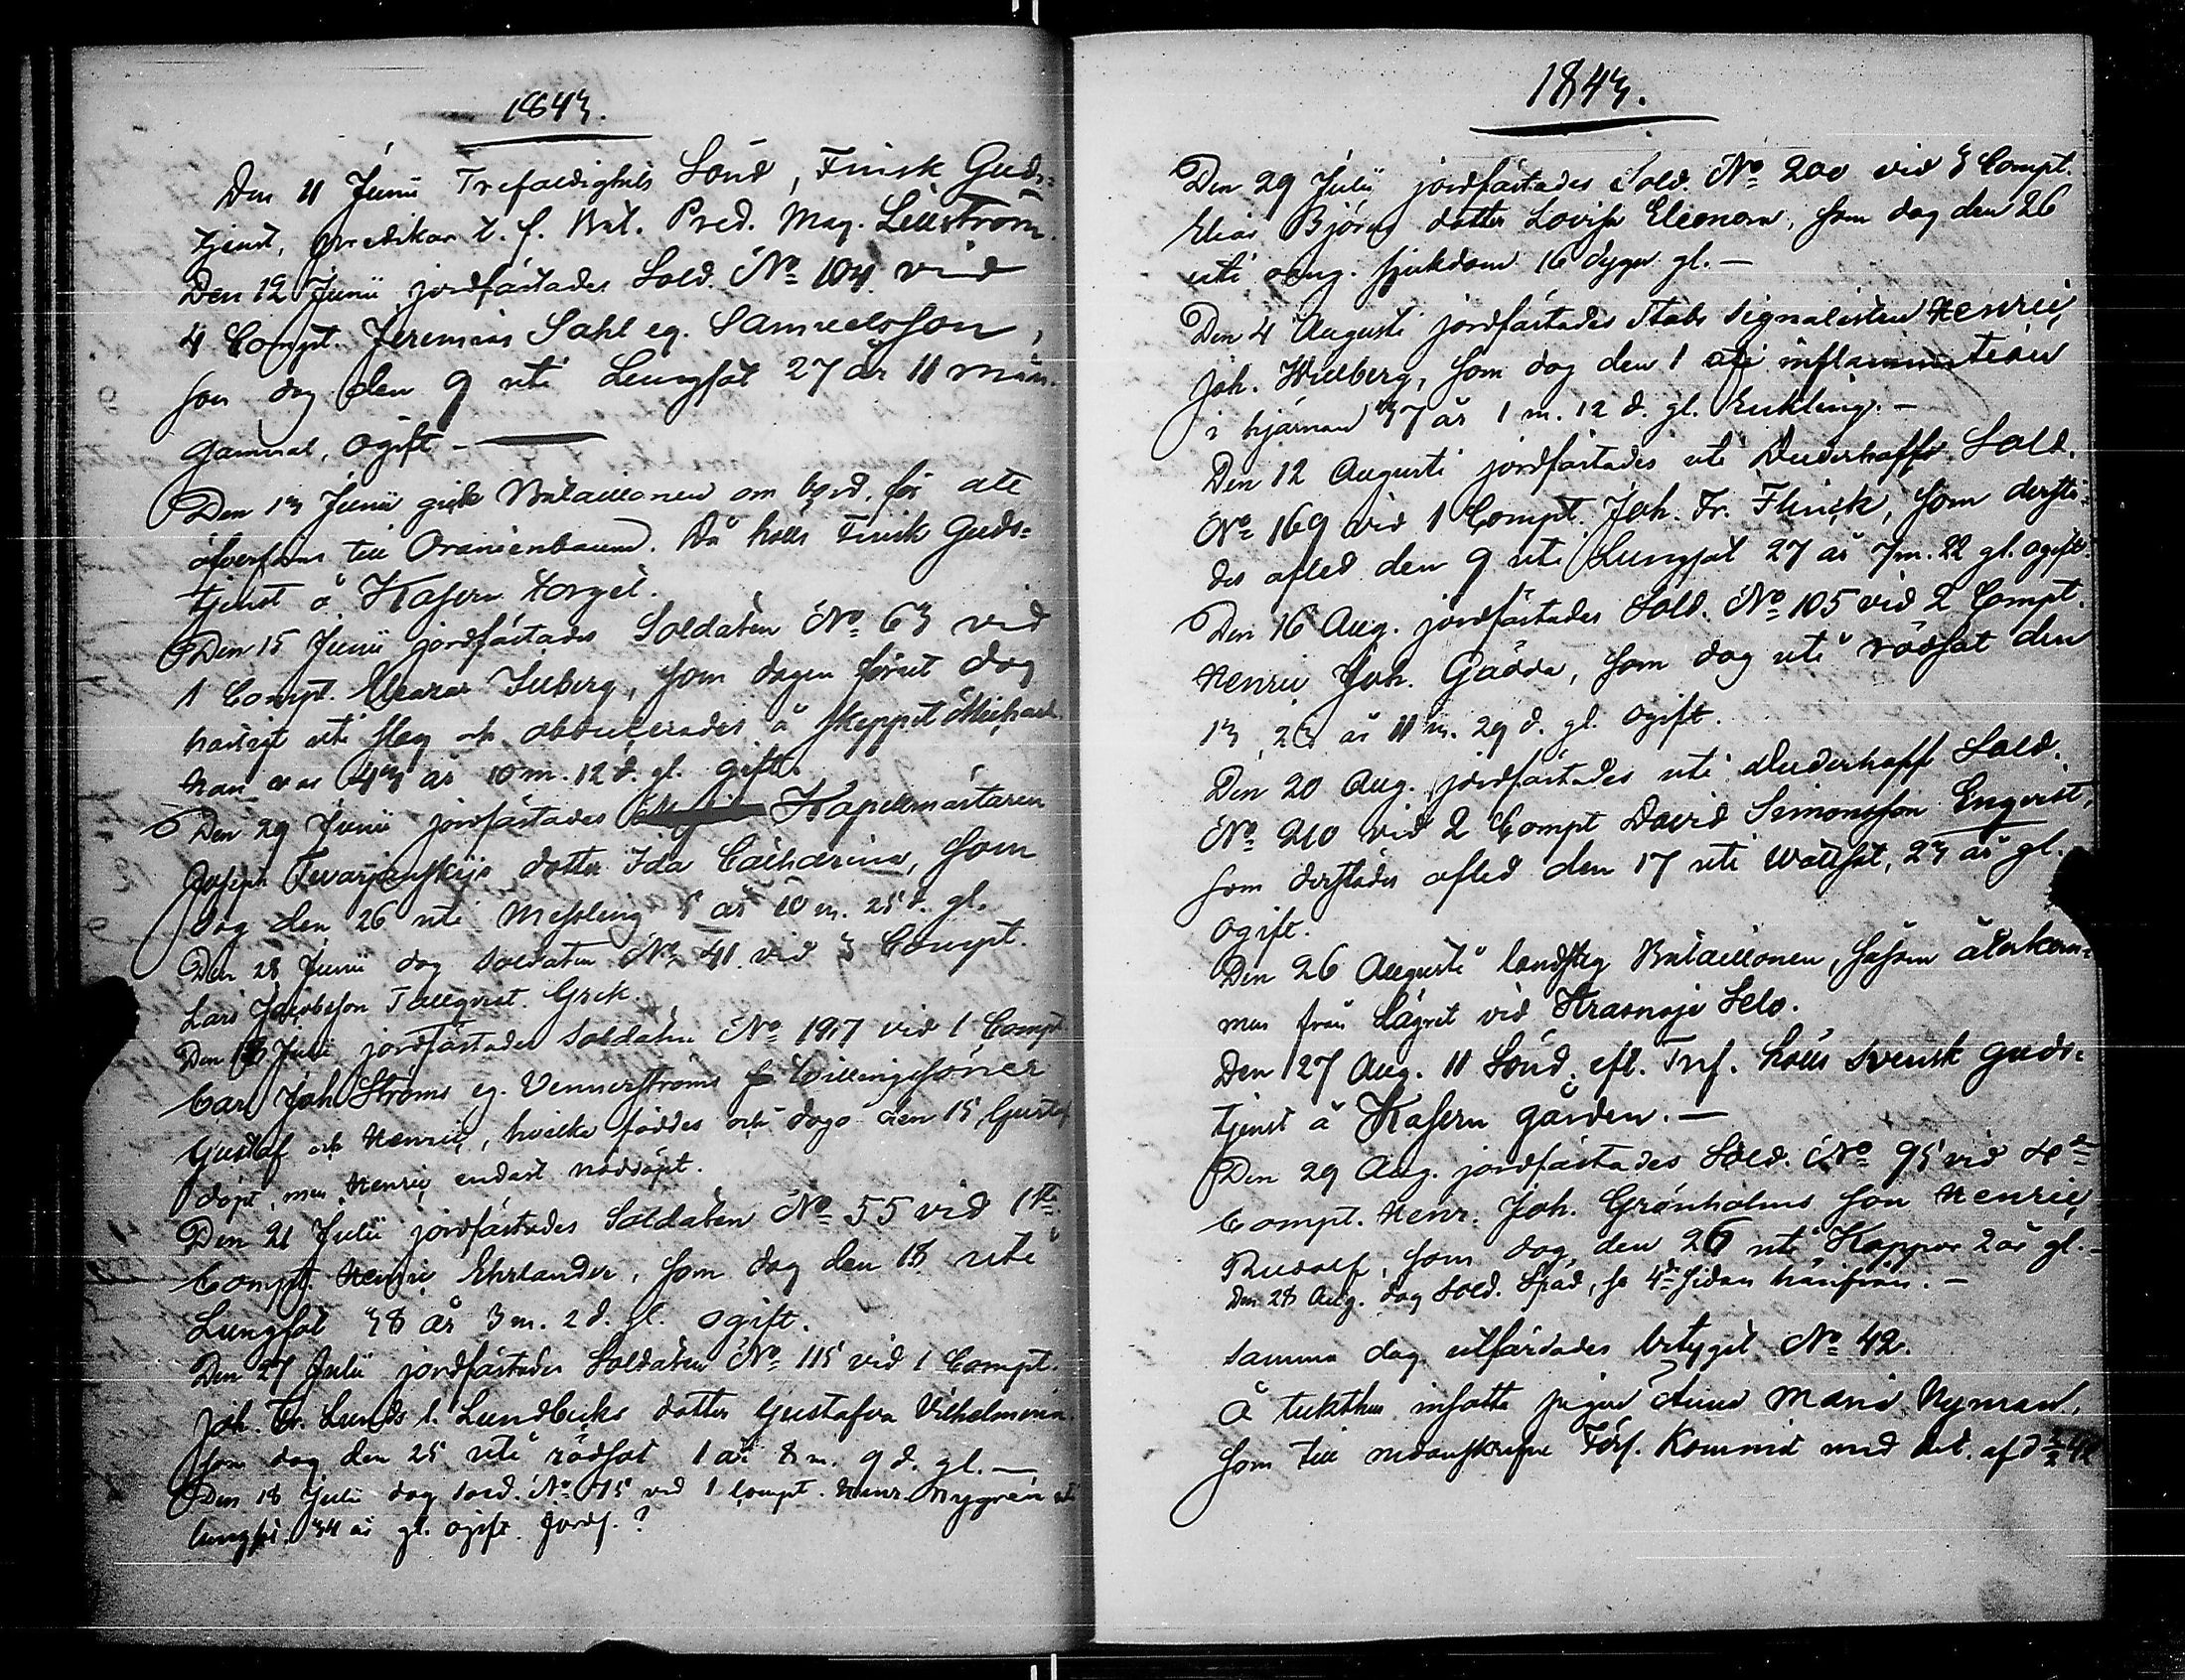 1843.
Den 11 Junii Trefaldighets Sönd, Finsk Guds-
tjenst, predikar t. f. Bat. Pred. Mag. Lillström.
Den 12 Junii jordfästades Sold. No 104 vid
4 Compt. Jeremias Sahl eg. Samuelsson,
som dog den 9 uti Lungsot 27 år 11 mån.
gammal, ogift. —
Den 13 Junii gick Bataillonen om bord, för att
öfverföras till Oranienbaum. Då hölls Finsk Guds-
tjenst å Kasern torget.
Den 15 Junii jordfästades Soldaten No 63 vid
1 Compt. Iseberg, som dagen förut dog
hastigt uti slag och obducerades å skeppet
han var 43 år 10 m. 12 d. gl. gift.
Den 29 Junii jordfästades Kapellmästaren
Joseph dotter Ida Catharina, som
dog den 26 uti Messling 5 år 10 m. 25 d. gl.
Den 28 Junii dog soldaten No 41 vid 3 Compt.
Lars Jacobsson Tallqvist. Grek.
Den 18 Julii jordfästades Soldaten No 197 vid 1 Compt
Carl Joh Ströms eg. Vennerströms Tvillingsöner
Gustaf och Henric, hvilka föddes och dogo den 15, Gustaf
döpt, men Henric endast nöddöpt.
Den 21 Julii jordfästades Soldaten No 55 vid 1sta
Compt. Henric Ehrlander, som dog den 18 uti
Lungsot 38 år 3 m. 2 d. gl. ogift.
Den 27 Julii jordfästades Soldaten No 115 vid 1 Compt.
Joh. Fr. Lunds l. Lundbecks dotter Gustafva Vilhelmina.
som dog den 25 uti rödsot 1 år 8 m. 9 d. gl. —
Den 18 Julii dog sold. No 75 vid 1 Compt. Henr. Nygrén uti
lungsot. 34 år gl. ogift. Jordf.?
1843.
Den 29 Julii jordfästades Sold. No 200 vid 3 Compt.
Elias Björns dotter Lovisa Eleonora, som dog den 26
uti sjukdom 16 dygn gl. —
Den 4 Augusti jordfästades Stabs Signalisten Henric
Joh. Willberg, som dog den 1 uti inflammation
i hjärnan 37 år 1 m. 12 d. gl. Enkling. —
Den 12 Augusti jordfästades uti Duderhoff Sold.
No 169 vid 1 Compt. Joh. Fr. Flinck, som dersta-
des afled den 9 uti Lungsot 27 år 7 m. 22 gl. ogift.
Den 16 Aug. jordfästades Sold. No 105 vid 2 Compt.
Henric Joh. Gädda, som dog uti rödsot den
13, 23 år 11 m. 29 d. gl. ogift.
Den 20 Aug. jordfästades uti Duderhoff Sold.
No 210 vid 2 Compt David Simonsson Enqvist,
som derstädes afled den 17 uti Wattsot, 23 år gl.
ogift.
Den 26 Augusti landsteg Bataillonen, såsom återkom-
men från Lägret vid Krasnoje Selo.
Den 27 Aug. 11 Sönd. eft. Tref. hölls Svensk guds-
tjenst å Kasern gården. —
Den 29 Aug. jordfästades Sold. No 95 vid
Compt. Henr. Joh. Grönholms son Henric
Rudolf, som dog den 26 uti Koppor 2 år gl. —
Den 28 Aug. dog Sold. Spad, se 4de sidan härifrån. —
Samma dag utfärdades betyget No 42.
å tukthus insatta pigan Anna Maria Nyman,
som till Förs. Kommit med